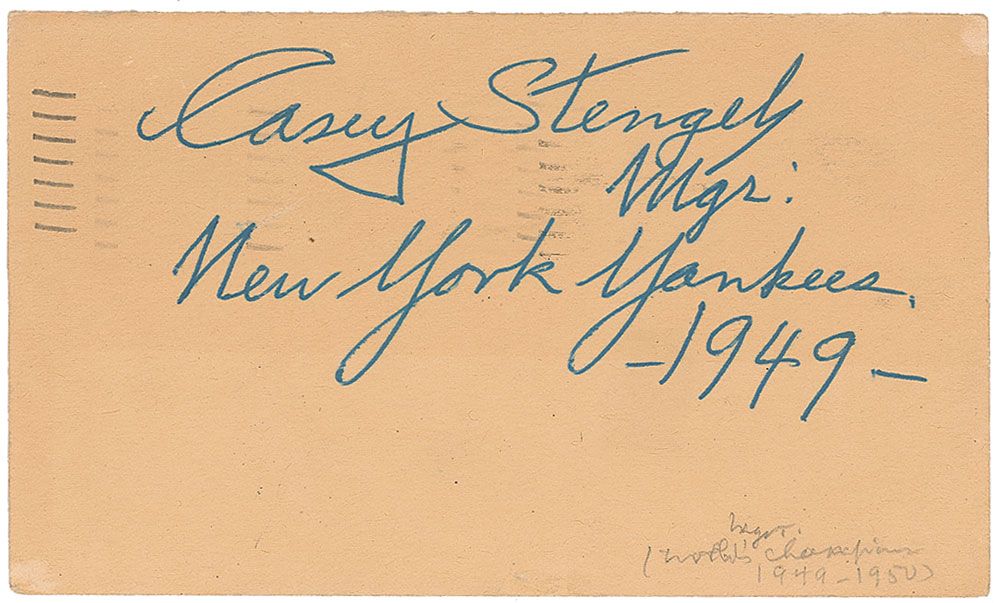 Casey Stengel
Mgr.
New York Yankees.
-1949-
Mgr.
(World's champions
1949-1950)